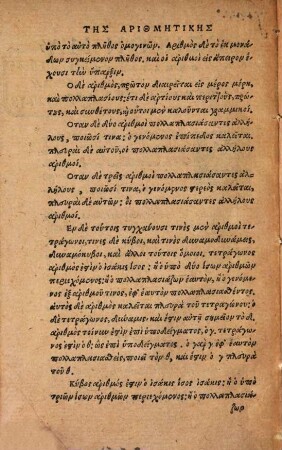 ΤΗΣ ΑΡΙΘΜΗΤΙΚΗΣ
ὑπὸ τὸ αὐτὸ πλῆθος ὁμογενῶν. Ἀριθμὸς δὲ τὸ ἐκ μονά-
δων συγκείμενον πλῆθος, καὶ οἱ ἀριθμοὶ εἰς ἄπειρον
ἔχουσι τὴν ὕπαρξιν.
Ο δὲ ἀριθμὸς, πρῶτον διαιρεῖται εἰς μέρος μέρη,
καὶ πολλαπλασίους· ἔτι δὲ ἀρτίους καὶ περιττοὺς, πρώ-
τους, καὶ συνθέτους, οἱ τοιοῦτοι καλοῦνται γραμμικοί.
Οταν δὲ δύο ἀριθμοὶ πολλαπλασιάσαντες ἀλλήλους,
ποιῶσί τινα, ὁ γενόμενος ἐπίπεδος καλεῖται,
πλευραὶ δὲ αὐτοῦ, οἱ πολλαπλασιάσαντες ἀλλήλους
ἀριθμοί.
Οταν δὲ τρεῖς ἀριθμοὶ πολλαπλασιάσαντες ἀλλή-
λους, ποιῶσί τινα, ὁ γενόμενος στερεὸς καλεῖται,
πλευραὶ δὲ αὐτῶν· οἱ πολλαπλασιάσαντες ἀλλήλους
ἀριθμοί.
Εν δὲ τούτοις τυγχάνουσί τινες μὲν ἀριθμοὶ τε-
τράγωνοι, τινὲς δὲ κύβοι, καὶ τινὲς δυναμοδυνάμεις,
δυναμόκυβοι, καὶ ἄλλοι τούτοις ὅμοιοι. τετράγωνος
ἀριθμός ἐστιν ὁ ἰσάκις ἴσος· ἢ ὁ ὑπὸ δύο ἴσων ἀριθμῶν
περιεχόμενος· ἢ ὁ πολλαπλασιάζων ἑαυτόν, ἢ ὁ γενόμενος
ἐξ ἀριθμοῦ τινος, ἐφ' ἑαυτὸν πολλαπλασιασθέντος.
αὐτὸς δὲ ἀριθμὸς καλεῖται πλευρὰ τοῦ τετραγώνου· ὁ
δὲ τετράγωνος, δύναμις· καὶ ἔστιν αὐτῆς σημεῖον τὸ δ.
ἀριθμὸς τοίνυν ἐστὶν ἐπὶ ὑποδείγματος, ὁ γ. τετράγω-
νος ἐστὶν ὁ θ. ὡς ἐπὶ ὑποδείγματος. ὁ γὰρ γ ἐφ' ἑαυτὸν
πολλαπλασιασθεὶς, ποιεῖ τὸν θ, καὶ ἐστὶν ὁ γ πλευρὰ
τοῦ θ.
Κύβος ἀριθμός ἐστιν ὁ ἰσάκις ἴσος ἰσάκις· ἢ ὁ ὑπὸ
τριῶν ἴσων ἀριθμῶν περιεχόμενος· ἢ ὁ πολλαπλασιά-
ζων